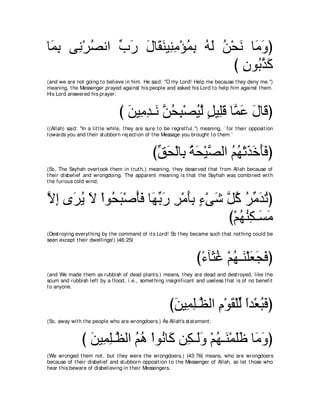 وَمَا نَحْنُ لَهُ بِمُؤْمِنِينَقَالَ رَبِّ انصُرْنِى بِمَا
كَذَّبُونِ )
(and we are not going to believe in him. He said: "O my Lord! Help me because they deny me.")
meaning, the Messenger prayed against his people and asked his Lord to help him against them.
His Lord answered his prayer:
(قَالَ عَمَّا قَلِيلٍ لَّيُصْبِحُنَّ نَـدِمِينَ )
((Allah) said: "In a little while, they are sure to be regretful.") meaning, `for their opposition
towards you and their stubborn rejection of the Message you brought to them.'
(فَأَخَذَتْهُمُ الصَّيْحَةُ بِالْحَقِّ)
(So, The Sayhah overtook them in truth,) meaning, they deserved that from Allah because of
their disbelief and wrongdoing. The apparent meaning is that the Sayhah was combined with
the furious cold wind,
(تُدَمِّرُ كُلَّ شَىْءٍ بِأَمْرِ رَبِّهَا فَأْصْبَحُواْ لاَ يُرَى إِلاَّ
مَسَـكِنُهُمْ)
(Destroying everything by the command of its Lord! So they became such that nothing could be
seen except their dwellings!) (46:25)
(فَجَعَلْنَـهُمْ غُثَآءً)
(and We made them as rubbish of dead plants.) means, they are dead and destroyed, like the
scum and rubbish left by a flood, i.e., something insignificant and useless that is of no benefit
to anyone.
(فَبُعْداً لِّلْقَوْمِ الظَّـلِمِينَ)
(So, away with the people who are wrongdoers.) As Allah's statement:
(وَمَا ظَلَمْنَـهُمْ وَلَـكِن كَانُواْ هُمُ الظَّـلِمِينَ )
(We wronged them not, but they were the wrongdoers.) (43:76) means, who are wrongdoers
because of their disbelief and stubborn opposition to the Messenger of Allah, so let those who
hear this beware of disbelieving in their Messengers.